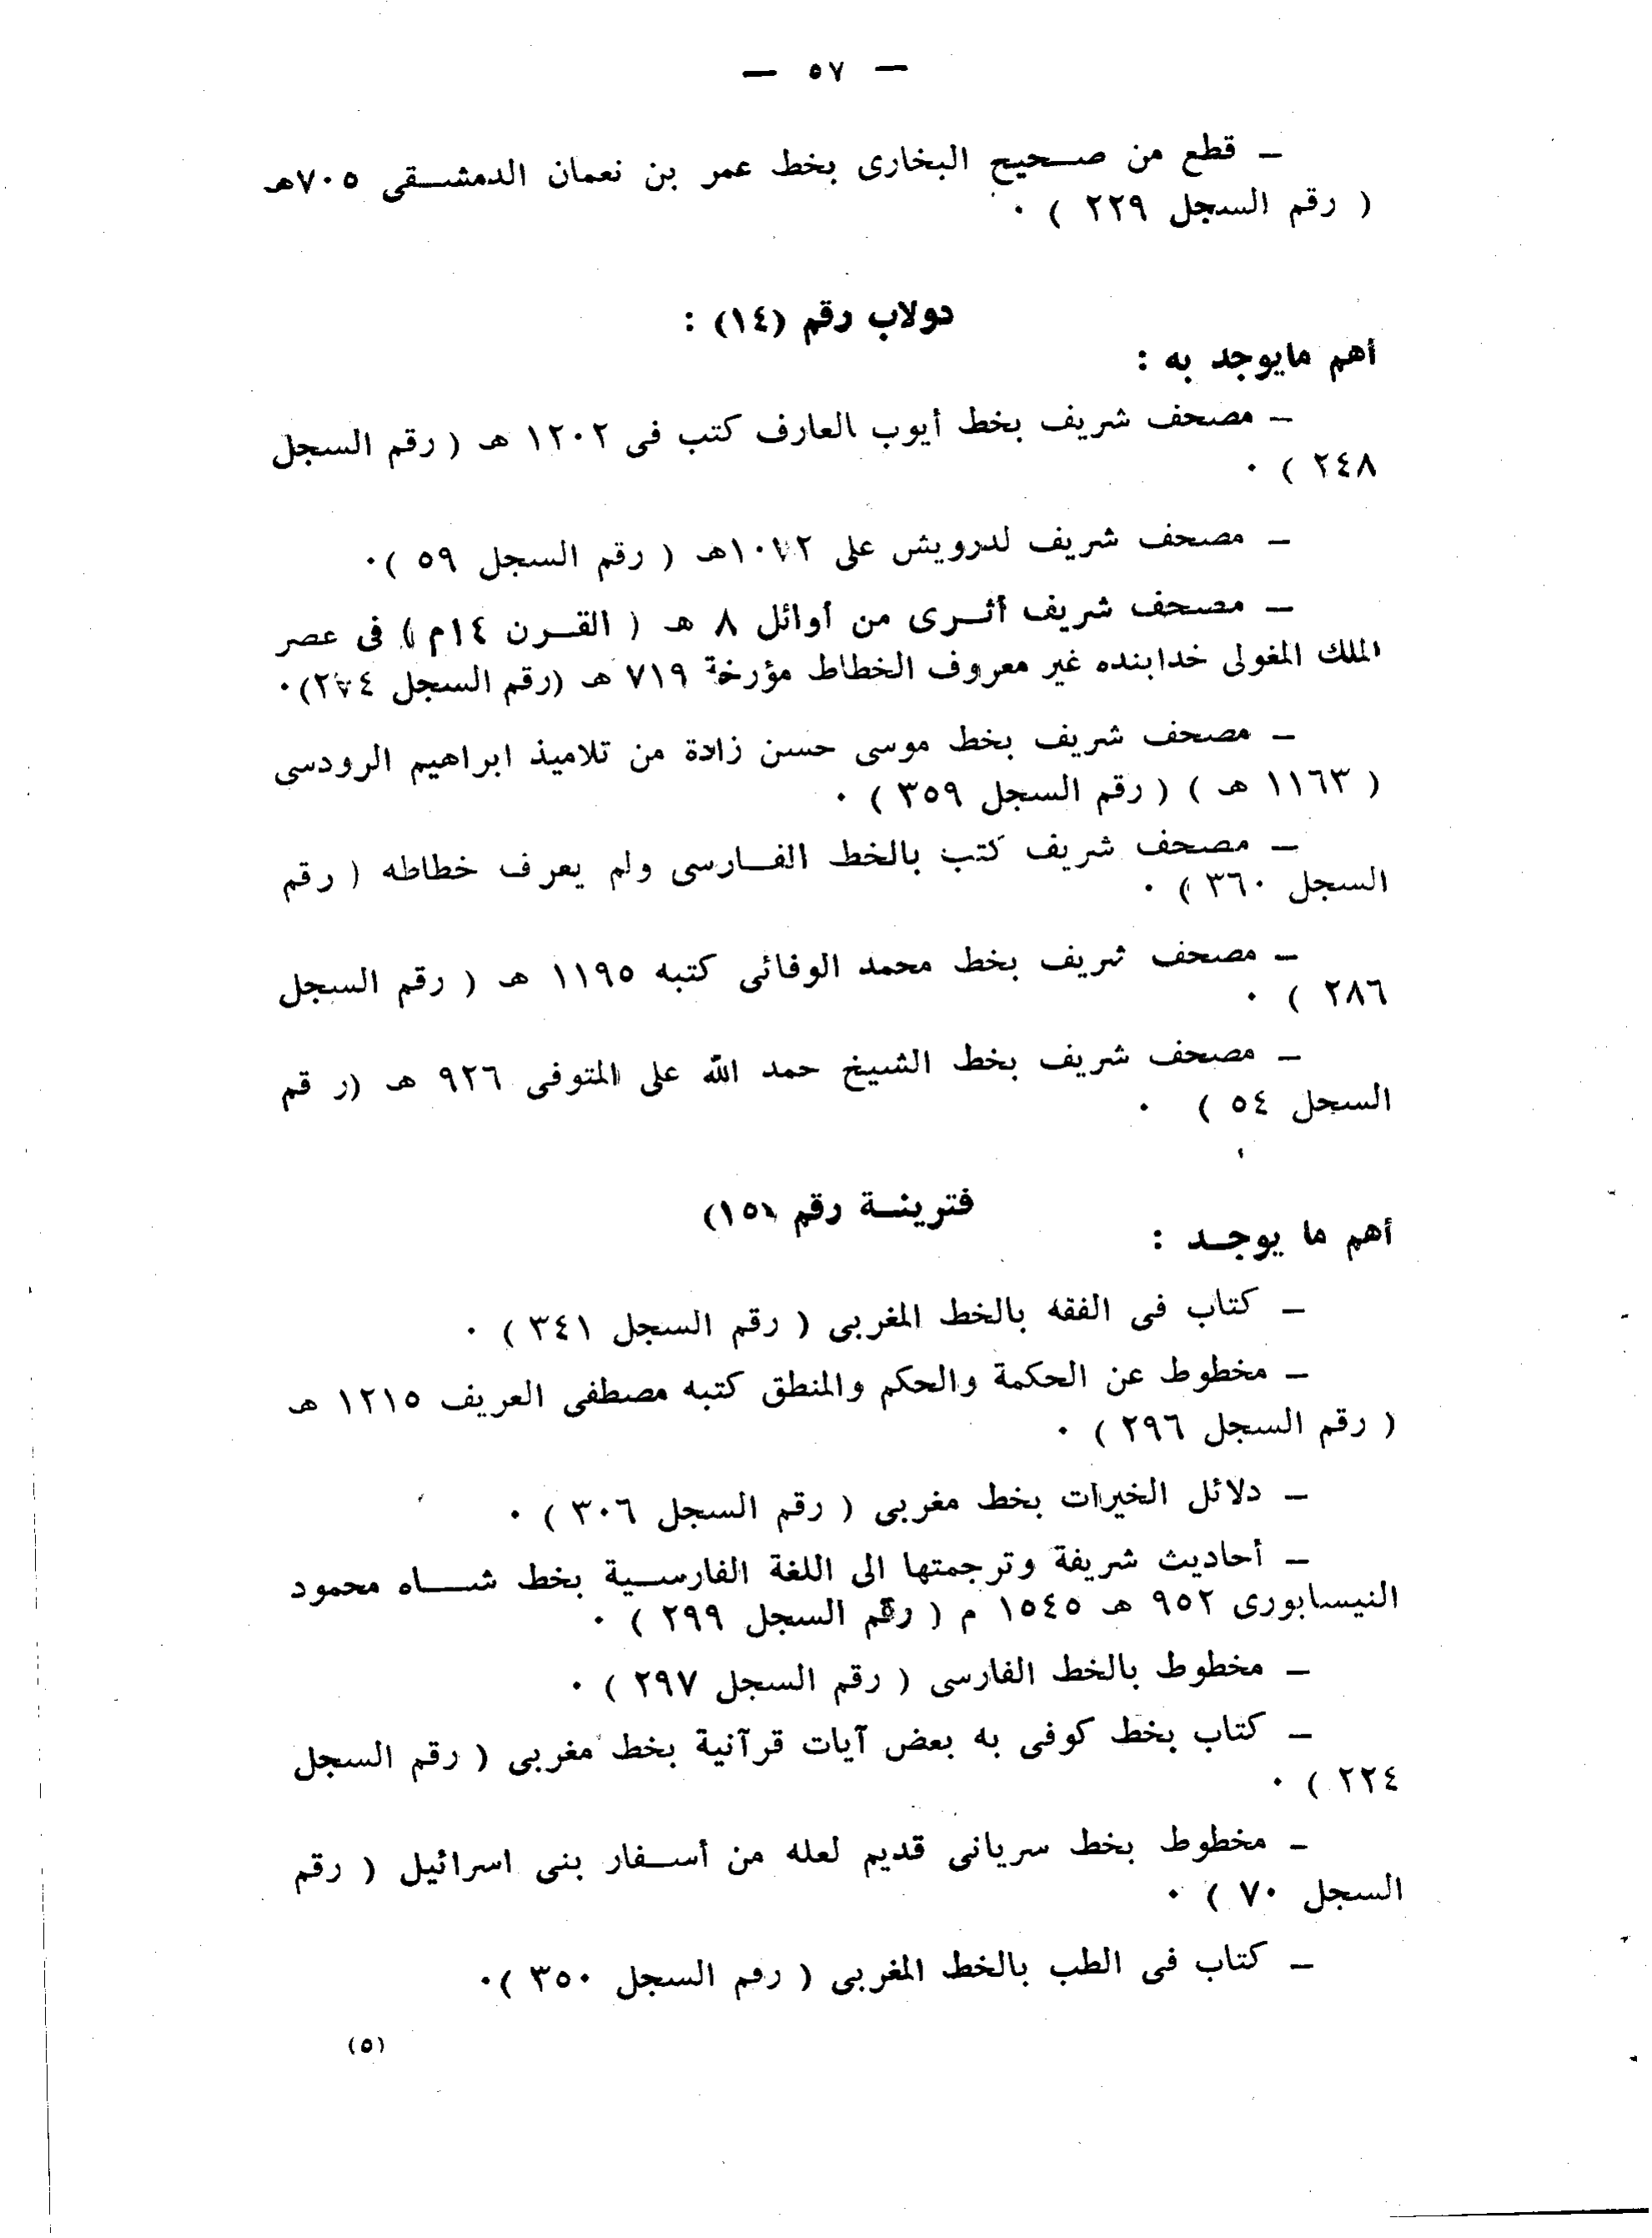 — ٥٧ —
– قطع من صحيح البخارى بخط عمر بن نعمان الدمشقى ٧٠٥هـ
( رقم السجل ٢٢٩ ) ٠
دولاب رقم (١٤) :
أهم مايوجد به :
– مصحف شريف بخط أيوب العارف كتب فى ١٢٠٢ هـ ( رقم السجل
٢٤٨ ) ٠
– مصحف شريف لدرويش على ١٠٧٢هـ ( رقم السجل ٥٩ )٠
– مصحف شريف أثرى من أوائل ٨ هـ ( القرن ١٤م ) فى عصر
الملك المغولى خدابنده غير معروف الخطاط مؤرخة ٧١٩ هـ (رقم السجل ٢٧٤)٠
– مصحف شريف بخط موسى حسن زادة من تلاميذ ابراهيم الرودسى
( ١١٦٣ هـ ) ( رقم السجل ٣٥٩ ) ٠
– مصحف شريف كتب بالخط الفارسى ولم يعرف خطاطه ( رقم
السجل ٣٦٠ ) ٠
– مصحف شريف بخط محمد الوفائى كتبه ١١٩٥ هـ ( رقم السجل
٢٨٦ ) ٠
– مصحف شريف بخط الشيخ حمد الله على المتوفى ٩٢٦ هـ (ر قم
السحل ٥٤ ) ٠
فترينة رقم (١٥)
أهم ما يوجد :
– كتاب فى الفقه بالخط المغربى ( رقم السجل ٣٤١ ) ٠
– مخطوط عن الحكمة والحكم والمنطق كتبه مصطفى العريف ١٢١٥ هـ
( رقم السجل ٢٩٦ ) ٠
– دلائل الخيرات بخط مغربى ( رقم السجل ٣٠٦ ) ٠
– أحاديث شريفة وترجمتها الى اللغة الفارسية بخط شاه محمود
النيسابورى ٩٥٢ هـ ١٥٤٥ م ( رقم السجل ٢٩٩ ) ٠
– مخطوط بالخط الفارسى ( رقم السجل ٢٩٧ ) ٠
– كتاب بخط كوفى به بعض آيات قرآنية بخط مغربى ( رقم السجل
٢٢٤ ) ٠
– مخطوط بخط سريانى قديم لعله من أسفار بنى اسرائيل ( رقم
السجل ٧٠ ) ٠
– كتاب فى الطب بالخط المغربى ( رقم السجل ٣٥٠ )٠
(٥)